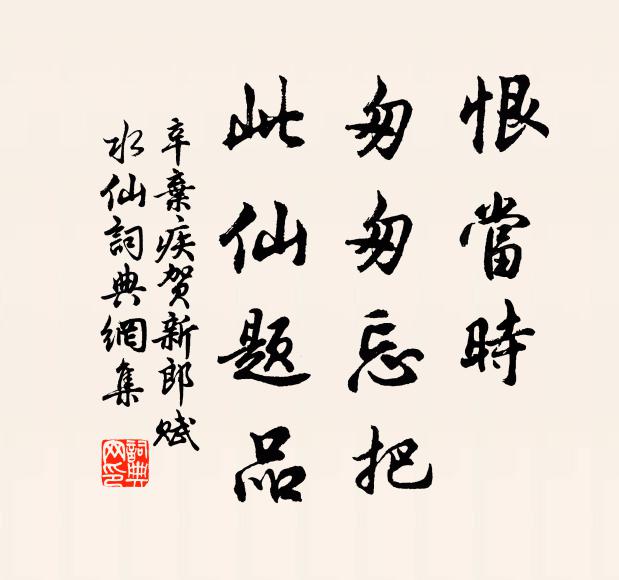 恨當時
匆匆忘把
此仙题品
辛棄疾贺新郎赋
水仙詞典網集
詞典
网印